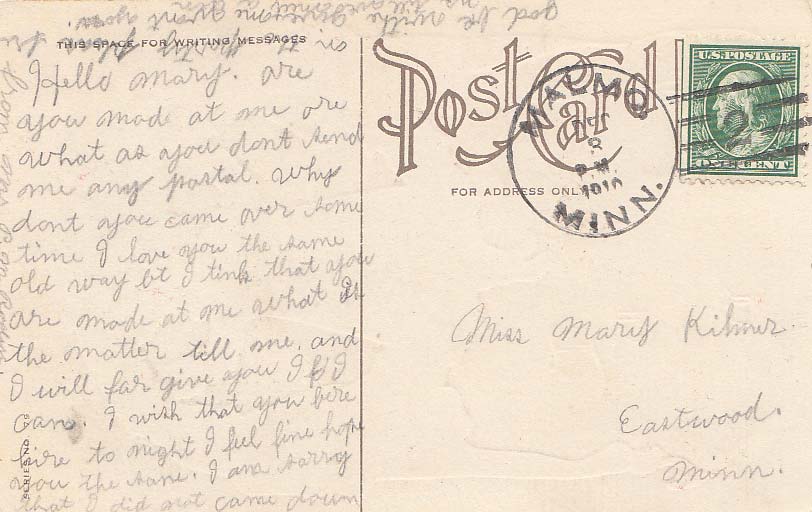 THIS SPACE FOR WRITING MESSAGES
Hello Mary. are
you made at me ore
what as you dont send
me any postal. Why
dont you came over some
time I love you the same
old way bt I tink that you
are made at me what is
the matter till me. and
I will far give you If I
can. I wish that you bire
hire to night I feel fine hope
you the same. I am sarry
that I did not came down
SERIES NO.
Post Card
FOR ADDRESS ONLY
MALMO
8
P.M
1910
MINN.
U.S. POSTAGE
ONE CENT
Miss Mary Kilmer.
Eastwood.
Minn.